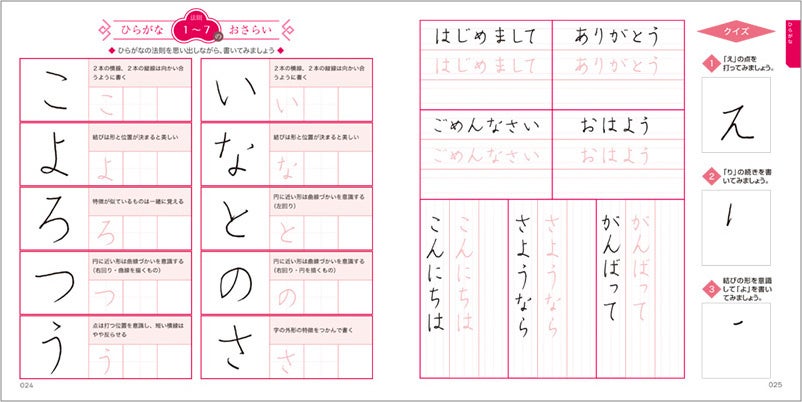 法則
ひらがな 1〜7 の おさらい
◆ ひらがなの法則を思い出しながら、書いてみましょう ◆
こ
2本の横線、2本の縦線は向かい合
うように書く
こ
い
2本の横線、2本の縦線は向かい合
うように書く
い
よ
結びは形と位置が決まると美しい
よ
な
結びは形と位置が決まると美しい
な
ろ
特徴が似ているものは一緒に覚える
ろ
と
円に近い形は曲線づかいを意識する
(左回り)
と
つ
円に近い形は曲線づかいを意識する
(右回り・曲線を描くもの)
つ
の
円に近い形は曲線づかいを意識する
(右回り・円を描くもの)
の
う
点は打つ位置を意識し、短い横線は
やや反らせる
う
さ
字の外形の特徴をつかんで書く
さ
024
はじめまして
はじめまして
ありがとう
ありがとう
ごめんなさい
ごめんなさい
おはよう
おはよう
がんばって
がんばって
さようなら
さようなら
こんにちは
こんにちは
ひらがな
クイズ
1
「え」の点を
打ってみましょう。
2
「り」の続きを書
いてみましょう。
3
結びの形を意識
して「よ」を書い
てみましょう。
025